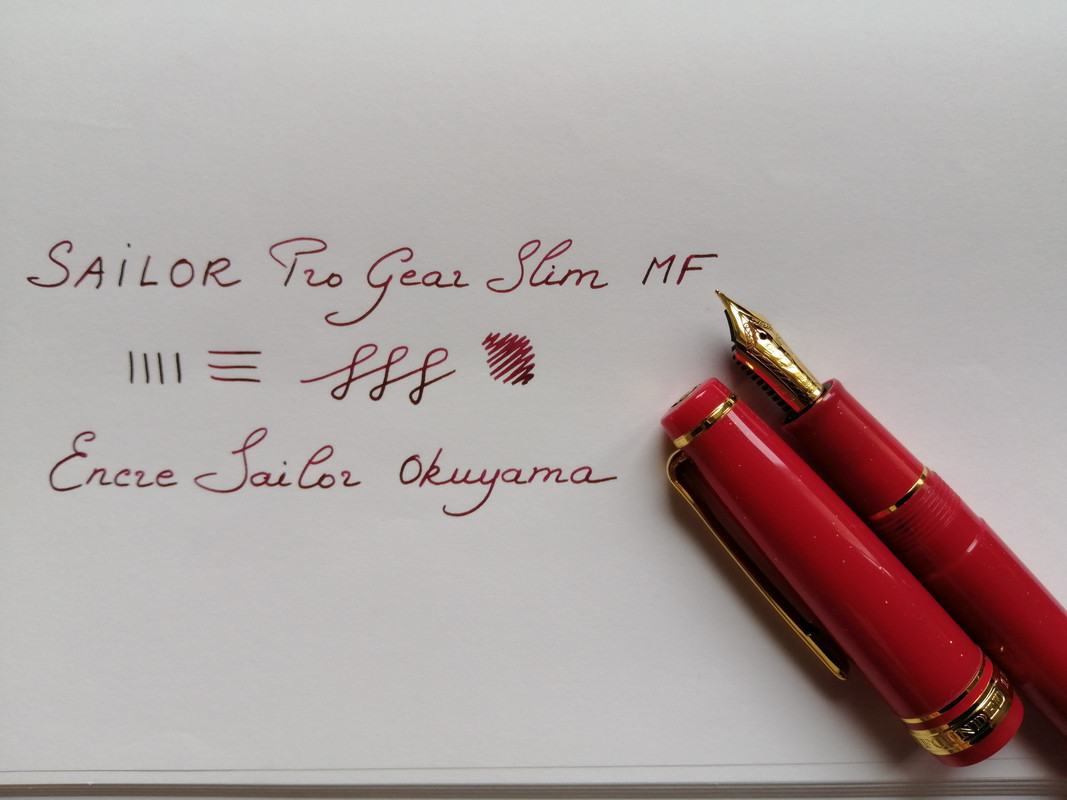 SAILOR Pro Gear Slim MF
Encre Sailor Okuyama